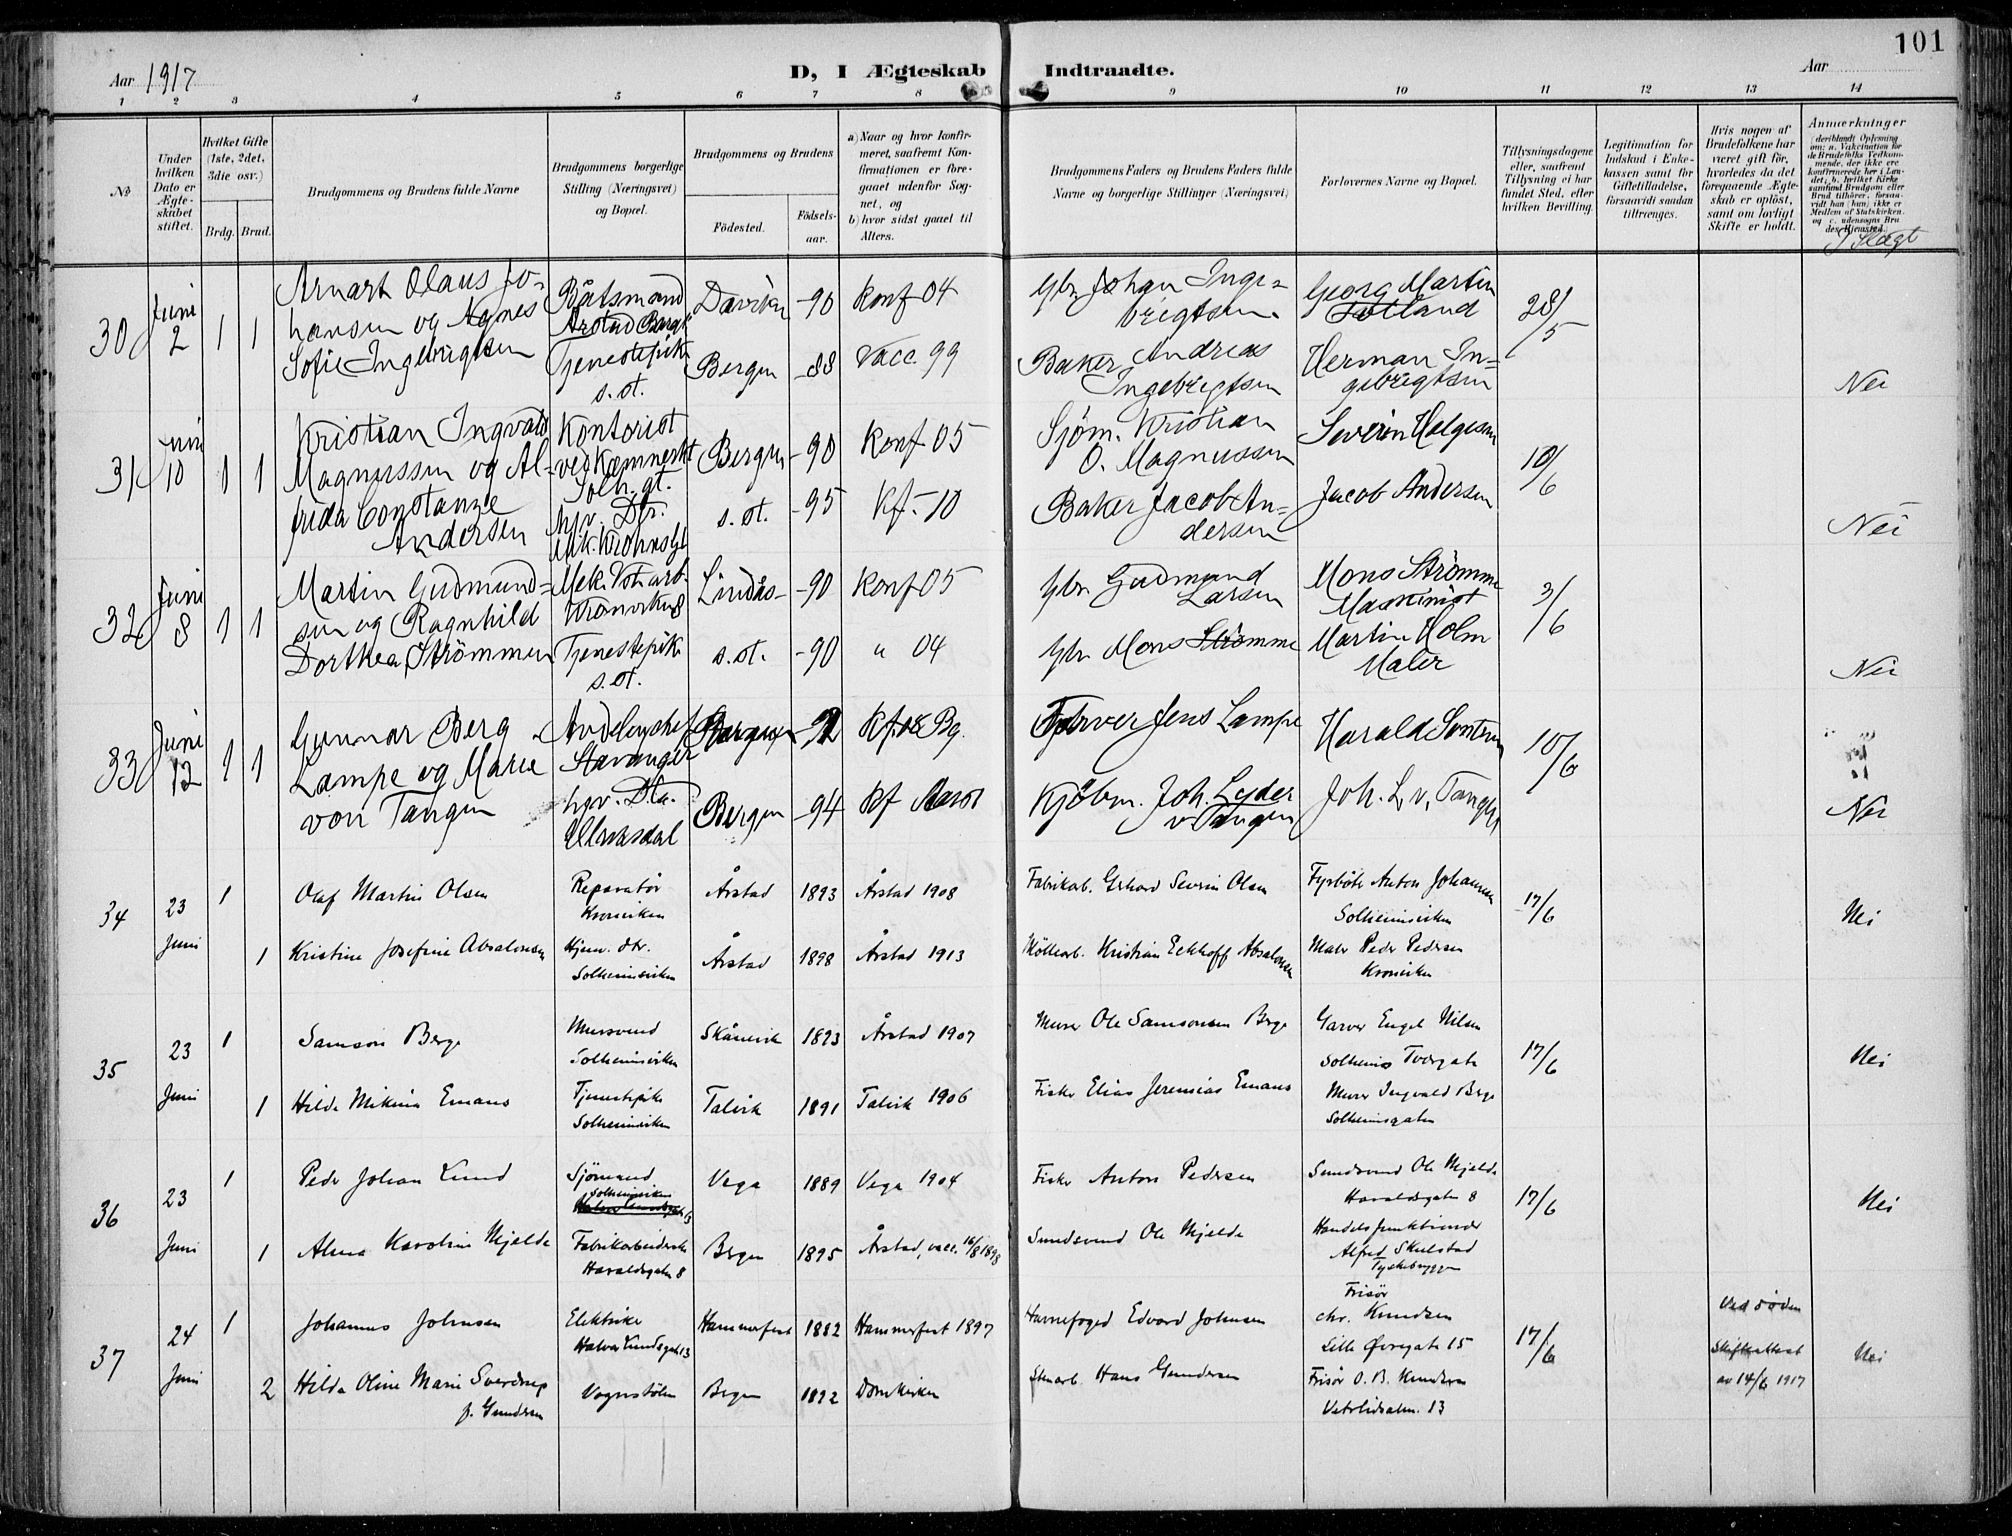 101
Aar 1917
D, I Ægteskab Indtraadte.
Aar
1 2 3 4 5 6 7 8 9 10 11 12 13 14
No
Under hvilken Dato er Ægteskabet stiftet.
Hvilket Gifte (1ste, 2det, 3die osv.)
Brdg. Brud.
Brudgommens og Brudens fulde Navne
Brudgommens borgerlige Stilling (Næringsvei) og Bopæl.
Brudgommens og Brudens
Födested.
Födselsaar.
a) Naar og hvor konfirmeret, saafremt Konfirmationen er foregaaet udenfor Sognet, og
b) hvor sidst gaaet til Alters.
Brudgommens Faders og Brudens Faders fulde Navne og borgerlige Stillinger (Næringsvei)
Forlovernes Navne og Bopæl.
Tillysningsdagene eller, saafremt Tillysning ei har fundet Sted, efter hvilken Bevilling.
Legitimation for Indskud i Enkekassen samt for Giftetilladelse, forsaavidt saadan tiltrænges.
Hvis nogen af Brudefolkene har været gift för, hvorledes da det foregaaende Ægteskab er oplöst, samt om lovligt Skifte er holdt.
Anmærkninger
I Slægt
30 Juni 2 1 1
Arnart Olaus Johansen og Agnes Sofie Ingebrigtsen
Båtsmand Årstad Berg
Tjenestepik s.st.
Davik -90 Konf 04
Bergen -88 Vacc. 99
Gbr. Johan Ingebrigtsen
Baker Andreas Ingebrigtsen
Georg Martin
Herman Ingebrigtsen
28/5
Nei
31 Juni 10 1 1
Kristian Ingvald Magnussen og Alfrida Constanze Andersen
Kontorist
Solh. gt.
Bergen -90 Konf 05
s.st. -95 Kf. -10
Sjöm. Kristian O. Magnussen
Baker Jacob Andersen
Severin Helgesen
Jacob Andersen
10/6
Nei
32 Juni 8 1 1
Martin Gudmundsen og Ragnhild Dorthea Strömmen
Kronviken 8
Tjenestepik s.st.
Lindås -90 Konf 05
s.st. -90 " 04
Gbr. Gudmund Larsen
Gbr. Mons Strömme
Mons Strömme Maskinist
Martin Holm Maler
3/6
Nei
33 Juni 12 1 1
Gunnar Berg Lampe og Marie von Tangen
Stavanger
Bergen -92 Kf. 08 Bg.
Bergen -94 Kf
Farver Jens Lampe
Kjöbm. Joh. Lyder v Tangen
Harald
Joh. L. v. Tangen
10/6
Nei
34 23 Juni 1 Olaf Martin Olsen Reparatör Kronviken Årstad 1893 Årstad 1908 Fabrikab. Gerhard Severin Olsen Fyrböter Anton Johansen Solheimsviken 17/6 Nei
1 Kristine Josefine Absalonsen Hjem. dtr. Solheimsviken Årstad 1898 Årstad 1913 Möllearb. Kristian Eckhoff Absalonsen Maler Peder Pedersen Kronviken
35 23 Juni 1 Samson Berge Mursvend Solheimsviken Skånevik 1893 Årstad 1907 Murer Ole Samsonsen Berge Garver Engel Nilsen Solheims Tvergate 17/6 Nei
1 Hilda Mikina Emaus Tjenestepike Solheimsviken Talvik 1891 Talvik 1906 Fisker Elias Jeremias Emaus Murer Ingvald Berge Solheimsgaten
36 23 Juni 1 Peder Johan Lund Sjömand Solheimsviken Vega 1889 Vega 1904 Fisker Anton Pedersen Smedsvend Ole Mjelde Haraldsgaten 8 17/6 Nei
1 Alma Karoline Mjelde Fabrikarbeiderske Haraldsgaten 8 Bergen 1895 Årstad, vacc. 16/8 1898 Smedsvend Ole Mjelde Handelsfunktionær Alfred Skulstad Tyskebryggen
37 24 Juni 1 Johannes Johnsen Elektriker Halvar Lundsgate 13 Hammerfest 1882 Hammerfest 1897 Havnefoged Edvard Johnsen Frisör Chr. Knudsen Lille Övregate 15 17/6
2 Hilda Oline Marie Sverdrup f. Gundersen Vognstölen Bergen 1892 Domkirken Stenarb. Hans Gundersen Frisör O. B. Knudsen Vetrlidsalm. 13
Ved döden Skifteattest av 14/6 1917 Nei